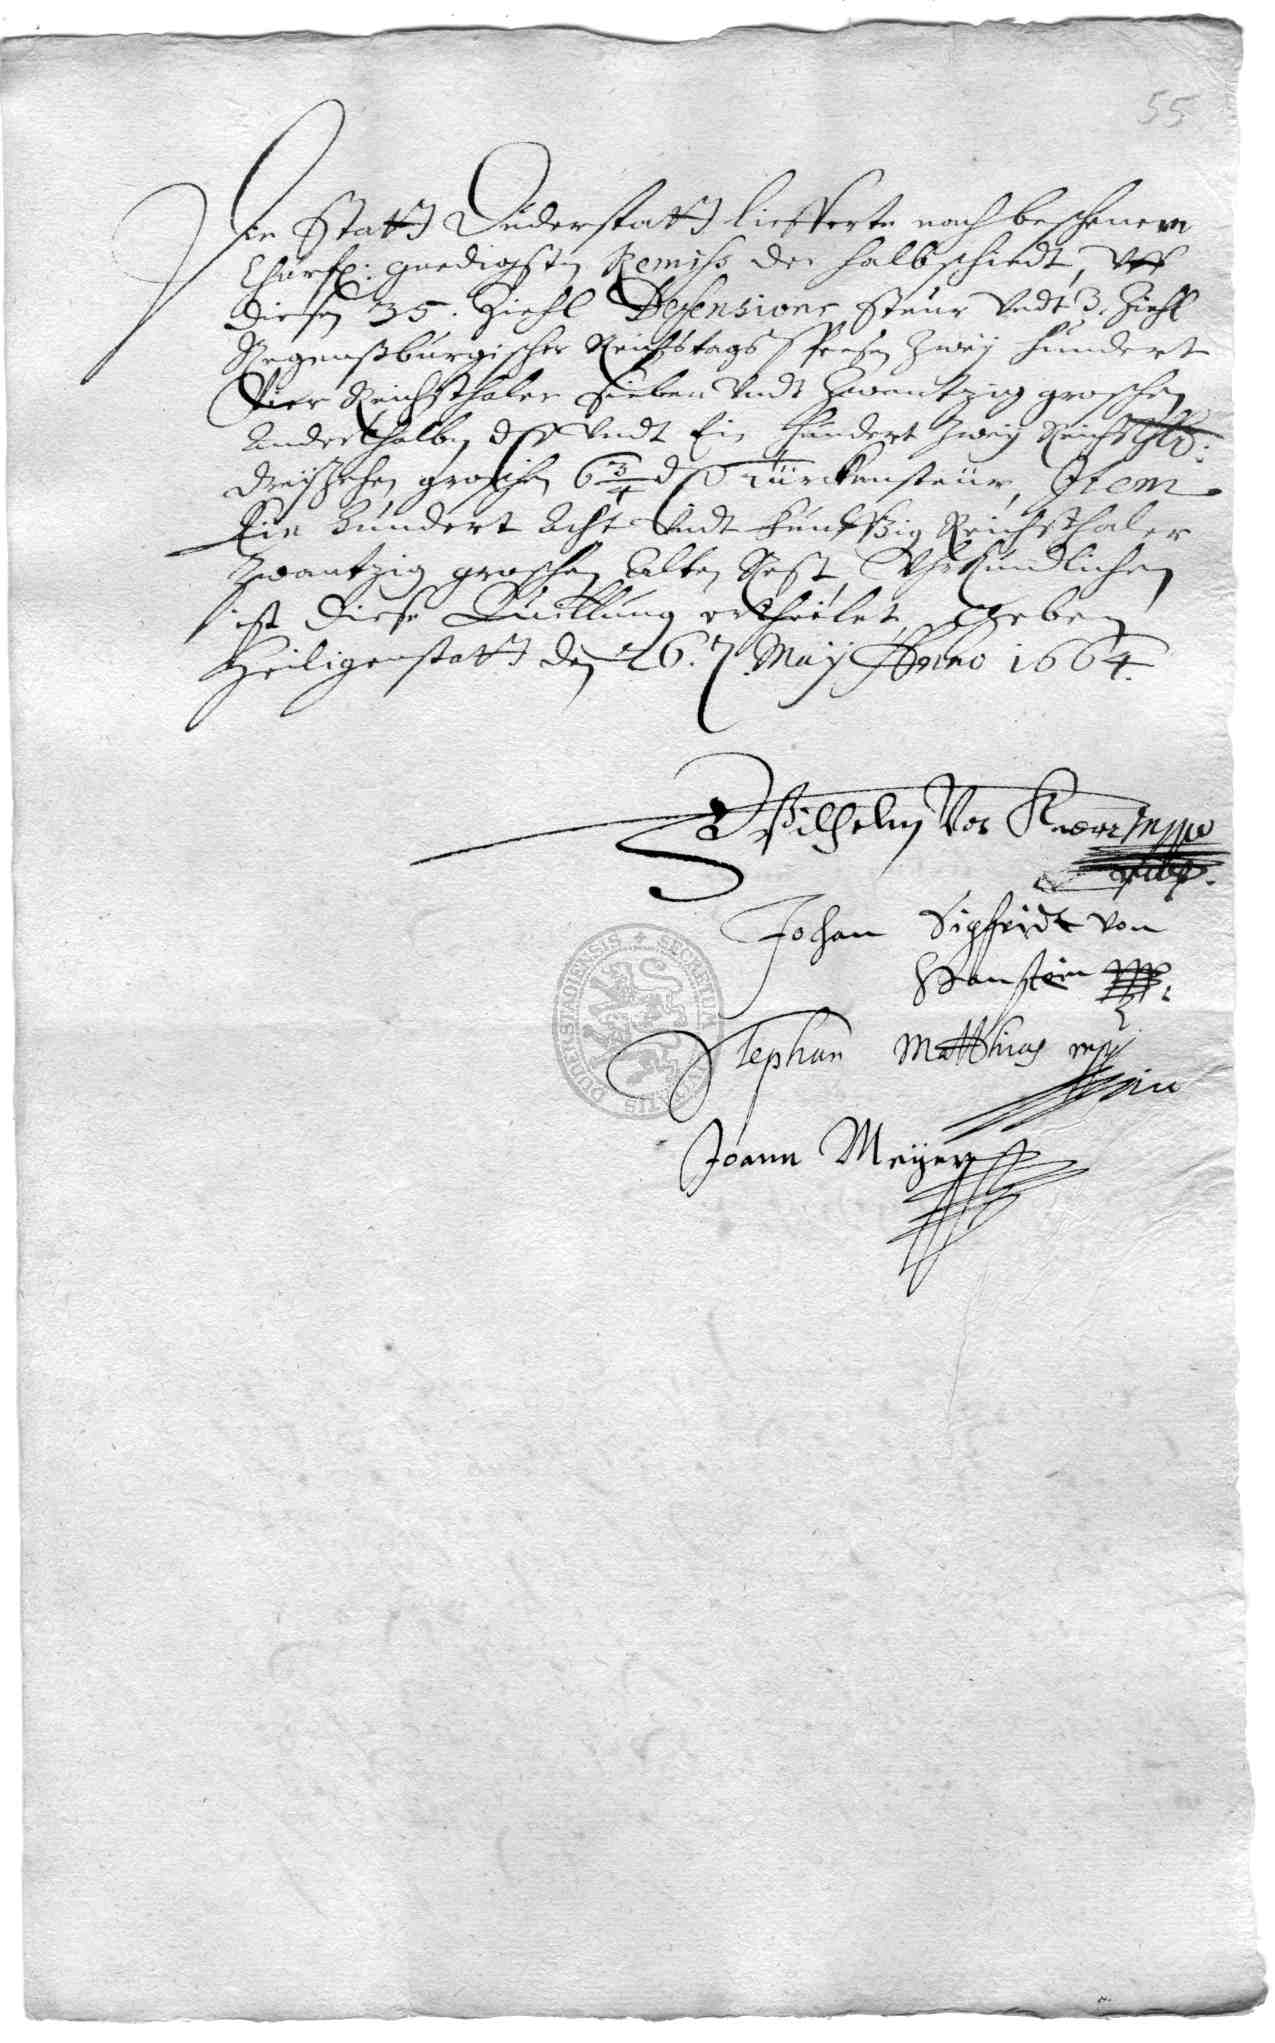 55
Die Statt Duderstatt liefferte nach beschenem
Churfl: gnedigsten Remiss der halbschiedt, vff
diesen 35. Ziehl Defensions steur vndt 3. Ziehl
Regenßburgischer Reichstags Spesen Zweij hundert
Vier Reichsthaler sieben vndt Zwantzig groschen
Anderthalben d vndt Ein hundert Zweij Reichsthlr:
dreijZehen groschen 6 3/4 d Türckensteür, Item
Ein hundert Acht vndt funffzig Reichsthaler
Zwantzig groschen Alten Rest, Vhrkundlichen
ist diese Quittung ertheilet, Geben
Heiligenstatt den 26. Maij Anno 1664.
Wilhelm Von mppa
Johan Sigfridt von
Hanstein mp
Stephan Matthias mp
Joann Meÿer
SECRETUM CIVITATIS DUDERSTADIENSIS